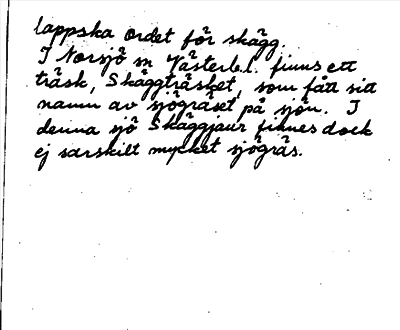 lappska ordet för skägg.
I Norsjö sn Västerb.l. finns ett
träsk, Skäggträsket, som fått sitt
namn av sjögräset på sjön. I
denna sjö Skäggjaur finnes dock
ej särskilt mycket sjögräs.